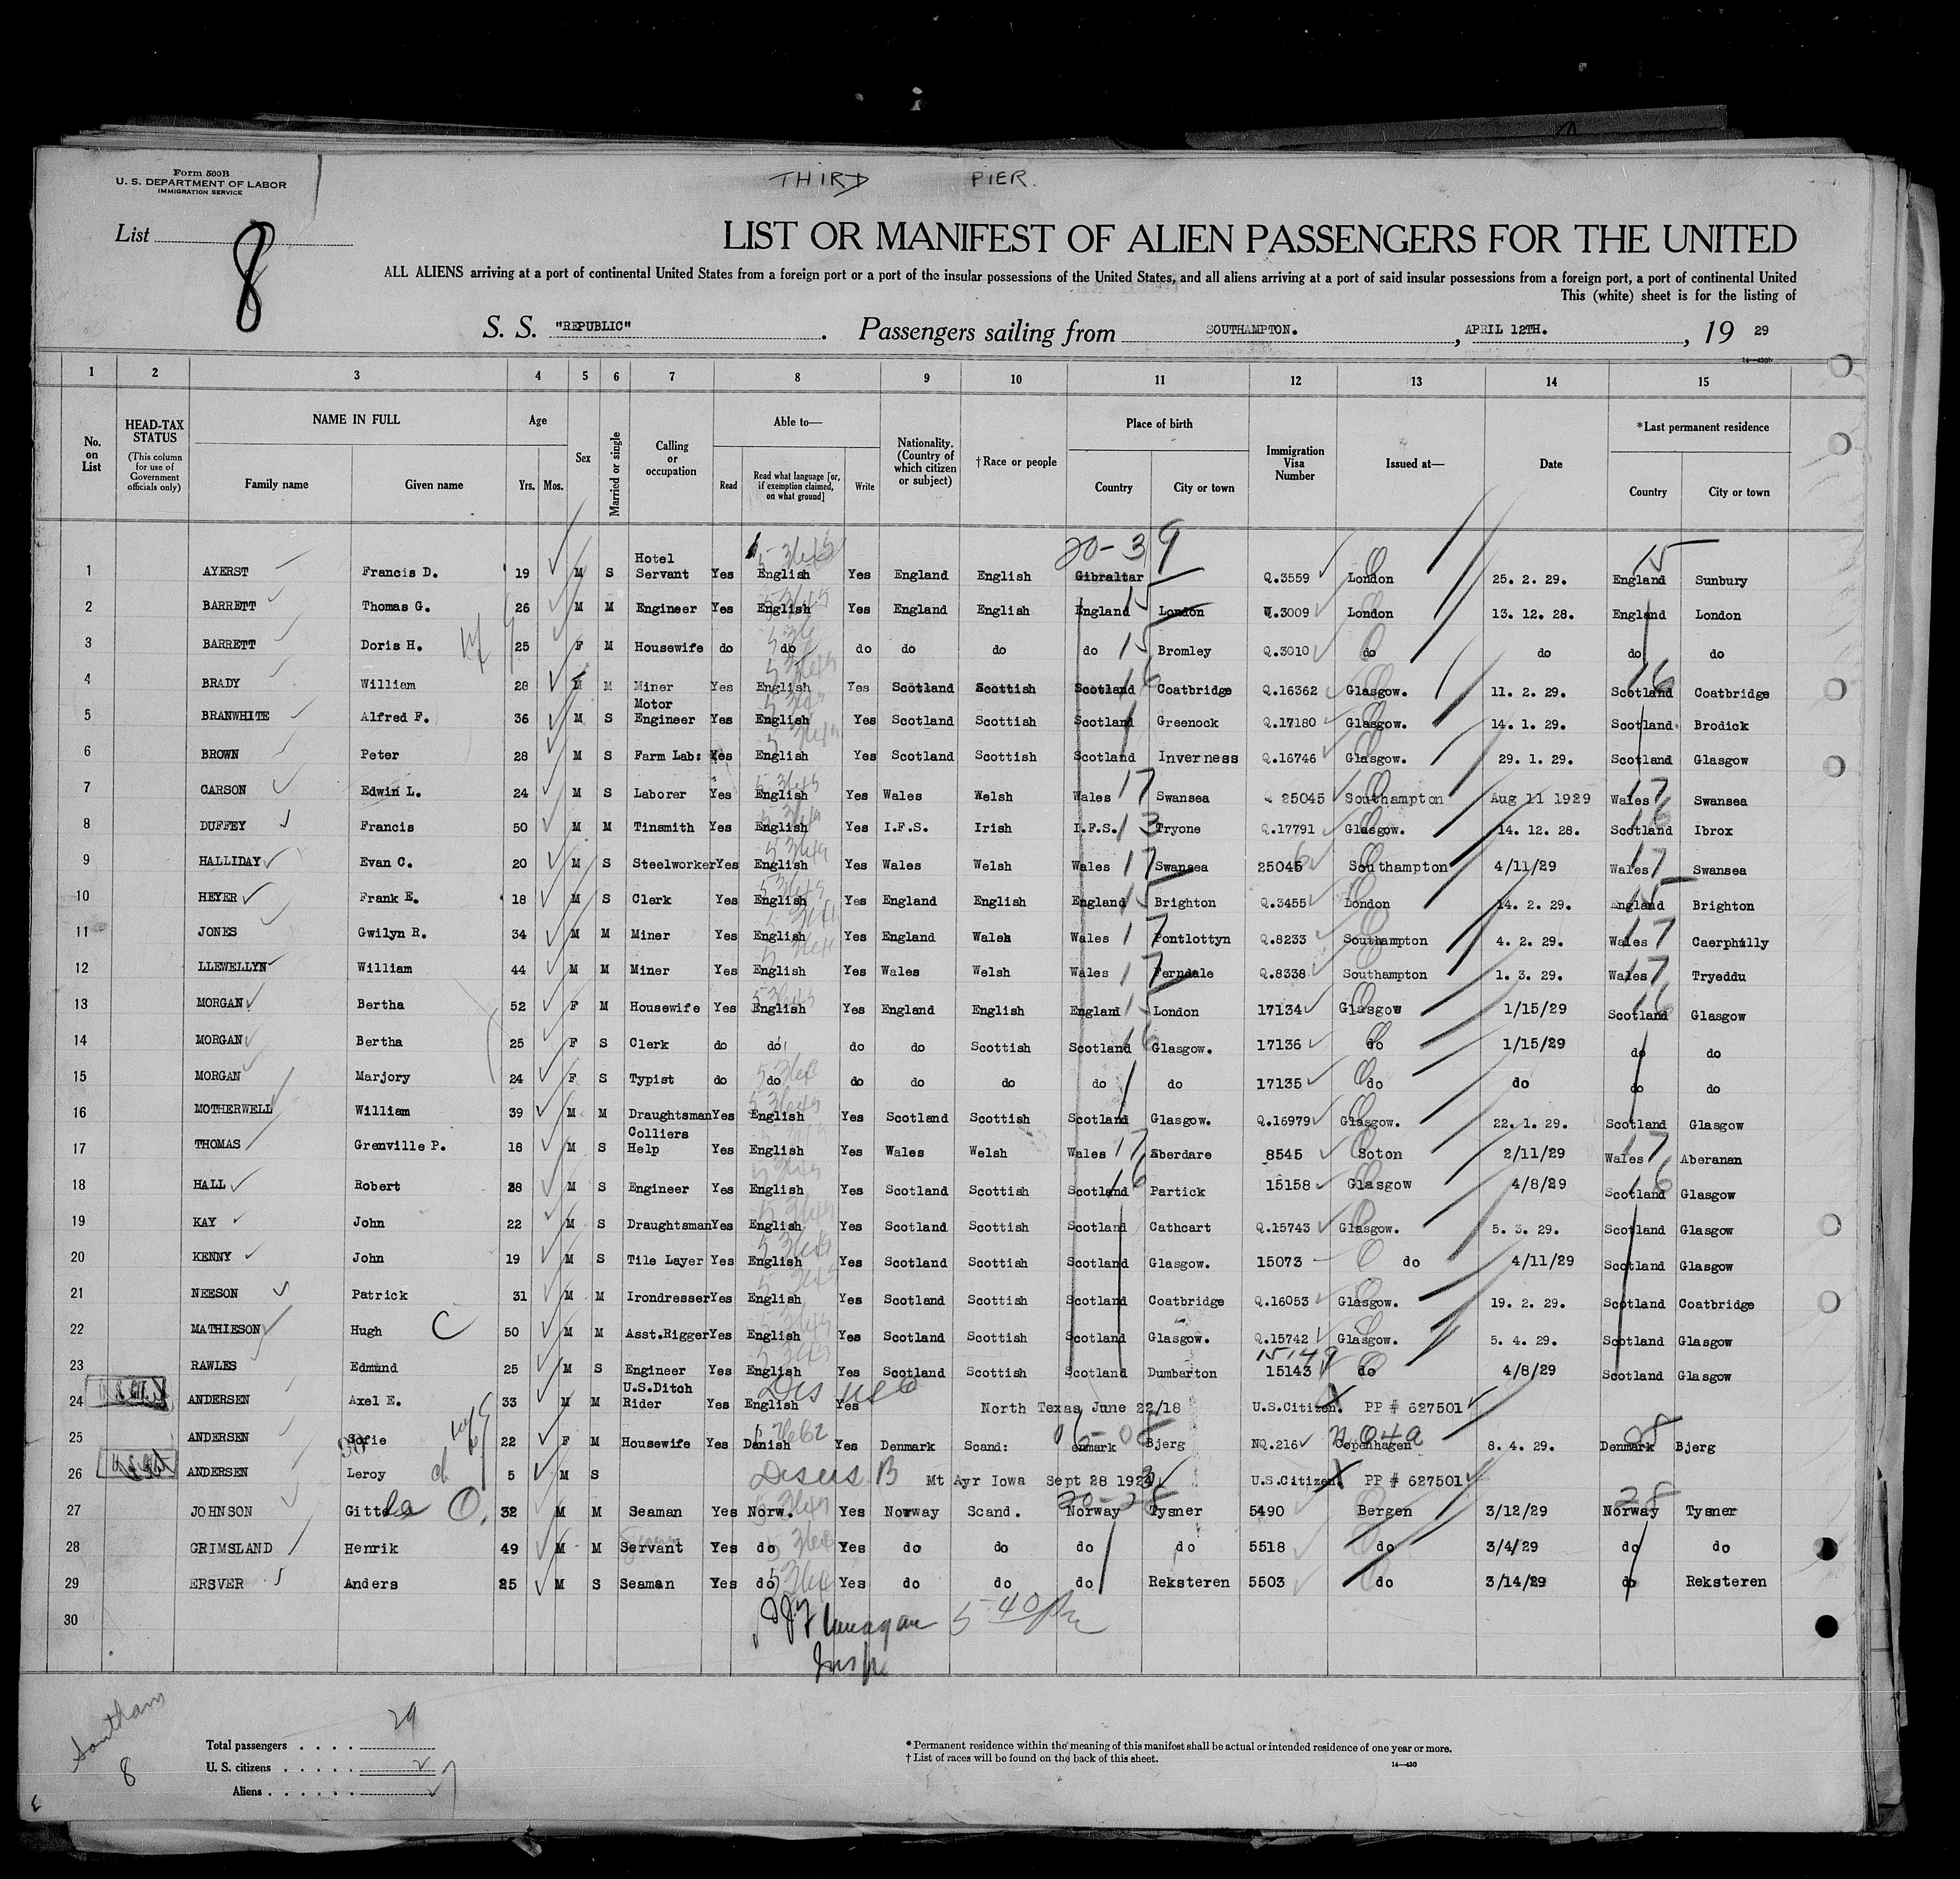 THIRD PIER.
Form 500B
U. S. DEPARTMENT OF LABOR
IMMIGRATION SERVICE
List 8
LIST OR MANIFEST OF ALIEN PASSENGERS FOR THE UNITED
ALL ALIENS arriving at a port of continental United States from a foreign port or a port of the insular possessions of the United States, and all aliens arriving at a port of said insular possessions from a foreign port, a port of continental United
This (white) sheet is for the listing of
S. S. "REPUBLIC". Passengers sailing from SOUTHAMPTON., APRIL 12TH., 19 29
1 2 3 4 5 6 7 8 9 10 11 12 13 14 15
No. on List
HEAD-TAX STATUS (This column for use of Government officials only)
NAME IN FULL Family name Given name
Age Yrs. Mos.
Sex
Married or single
Calling or occupation
Able to— Read Read what language [or, if exemption claimed, on what ground] Write
Nationality. (Country of which citizen or subject)
†Race or people
Place of birth Country City or town
Immigration Visa Number
Issued at—
Date
*Last permanent residence Country City or town
20-39 15
1 AYERST Francis D. 19 M S Hotel Servant Yes English Yes England English Gibraltar Q.3559 London 25. 2. 29. England Sunbury
2 BARRETT Thomas G. 26 M M Engineer Yes English Yes England English England London 3009 London 13. 12. 28. England London
3 BARRETT Doris H. 25 F M Housewife do do do do do do Bromley Q.3010 do do do do
4 BRADY William 28 M M Miner Yes English Yes Scotland Scottish Scotland Coatbridge Q.16362 Glasgow. 11. 2. 29. Scotland Coatbridge
5 BRANWHITE Alfred F. 36 M S Motor Engineer Yes English Yes Scotland Scottish Scotland Greenock Q.17180 Glasgow. 14. 1. 29. Scotland Brodick
6 BROWN Peter 28 M S Farm Lab: Yes English Yes Scotland Scottish Scotland Inverness Q.16746 Glasgow. 29. 1. 29. Scotland Glasgow
7 CARSON Edwin L. 24 M S Laborer Yes English Yes Wales Welsh Wales 17 Swansea Q 25045 Southampton Aug 11 1929 Wales 17 Swansea
8 DUFFEY Francis 50 M M Tinsmith Yes English Yes I.F.S. Irish I.F.S. 13 Tryone Q.17791 Glasgow. 14. 12. 28. Scotland 16 Ibrox
9 HALLIDAY Evan C. 20 M S Steelworker Yes English Yes Wales Welsh Wales 17 Swansea 25045 Southampton 4/11/29 Wales 17 Swansea
10 HEYER Frank E. 18 M S Clerk Yes English Yes England English England 15 Brighton Q.3455 London 14. 2. 29. England 15 Brighton
11 JONES Gwilyn R. 34 M M Miner Yes English Yes England Wales 17 Pontlottyn Q.8233 Southampton 4. 2. 29. Wales 17 Caerphilly
12 LLEWELLYN William 44 M M Miner Yes English Yes Wales Welsh Wales 17 Ferndale Q.8338 Southampton 1. 3. 29. Wales 17 Tryeddu
13 MORGAN Bertha 52 F M Housewife Yes English Yes England English England 15 London 17134 Glasgow 1/15/29 Scotland 16 Glasgow
14 MORGAN Bertha 25 F S Clerk do do do do Scottish Scotland 16 Glasgow. 17136 do 1/15/29 do do
15 MORGAN Marjory 24 F S Typist do do do do do do do 17135 do do do do
16 MOTHERWELL William 39 M M Draughtsman Yes English Yes Scotland Scottish Scotland Glasgow. Q.16979 Glasgow. 22. 1. 29. Scotland Glasgow
17 THOMAS Grenville P. 18 M S Colliers Help Yes English Yes Wales Welsh Wales 17 Aberdare 8545 Soton 2/11/29 Wales 17 Aberanan
18 HALL Robert 28 M S Engineer Yes English Yes Scotland Scottish Scotland 16 Partick 15158 Glasgow 4/8/29 Scotland 16 Glasgow
19 KAY John 22 M S Draughtsman Yes English Yes Scotland Scottish Scotland Cathcart Q.15743 Glasgow. 5. 3. 29. Scotland Glasgow
20 KENNY John 19 M S Tile Layer Yes English Yes Scotland Scottish Scotland Glasgow. 15073 do 4/11/29 Scotland Glasgow
21 NEESON Patrick 31 M M Irondresser Yes English Yes Scotland Scottish Scotland Coatbridge Q.16053 Glasgow. 19. 2. 29. Scotland Coatbridge
22 MATHIESON Hugh C 50 M M Asst.Rigger Yes English Yes Scotland Scottish Scotland Glasgow. Q.15742 Glasgow. 5. 4. 29. Scotland Glasgow
15149
23 RAWLES Edmund 25 M S Engineer Yes English Yes Scotland Scottish Scotland Dumbarton 15143 do 4/8/29 Scotland Glasgow
24 ANDERSEN Axel E. 33 M M U.S.Ditch Rider Yes English Yes North Texas June 22/18 U.S.Citizen. PP # 627501
25 ANDERSEN Sofie 22 F M Housewife Yes Danish Yes Denmark Scand: enmark Bjerg NQ.216 Copenhagen 8. 4. 29. Denmark 08 Bjerg
26 ANDERSEN Leroy 5 M S Mt Ayr Iowa Sept 28 1923 U.S.Citizen. PP # 627501
20-28 28
27 JOHNSON Gitle O. 32 M M Seaman Yes Norw. Yes Norway Scand. Norway Tysner 5490 Bergen 3/12/29 Norway Tysner
28 GRIMSLAND Henrik 49 M M Servant Yes do Yes do do do do 5518 do 3/4/29 do do
29 ERSVER Anders 25 M S Seaman Yes do Yes do do do Reksteren 5503 do 3/14/29 do Reksteren
30
Flanagan 5 40 Pm
Insp
8
Total passengers . . . . 29
U. S. citizens . . . . . 2
Aliens . . . . . . 27
* Permanent residence within the meaning of this manifest shall be actual or intended residence of one year or more.
† List of races will be found on the back of this sheet.
14—430